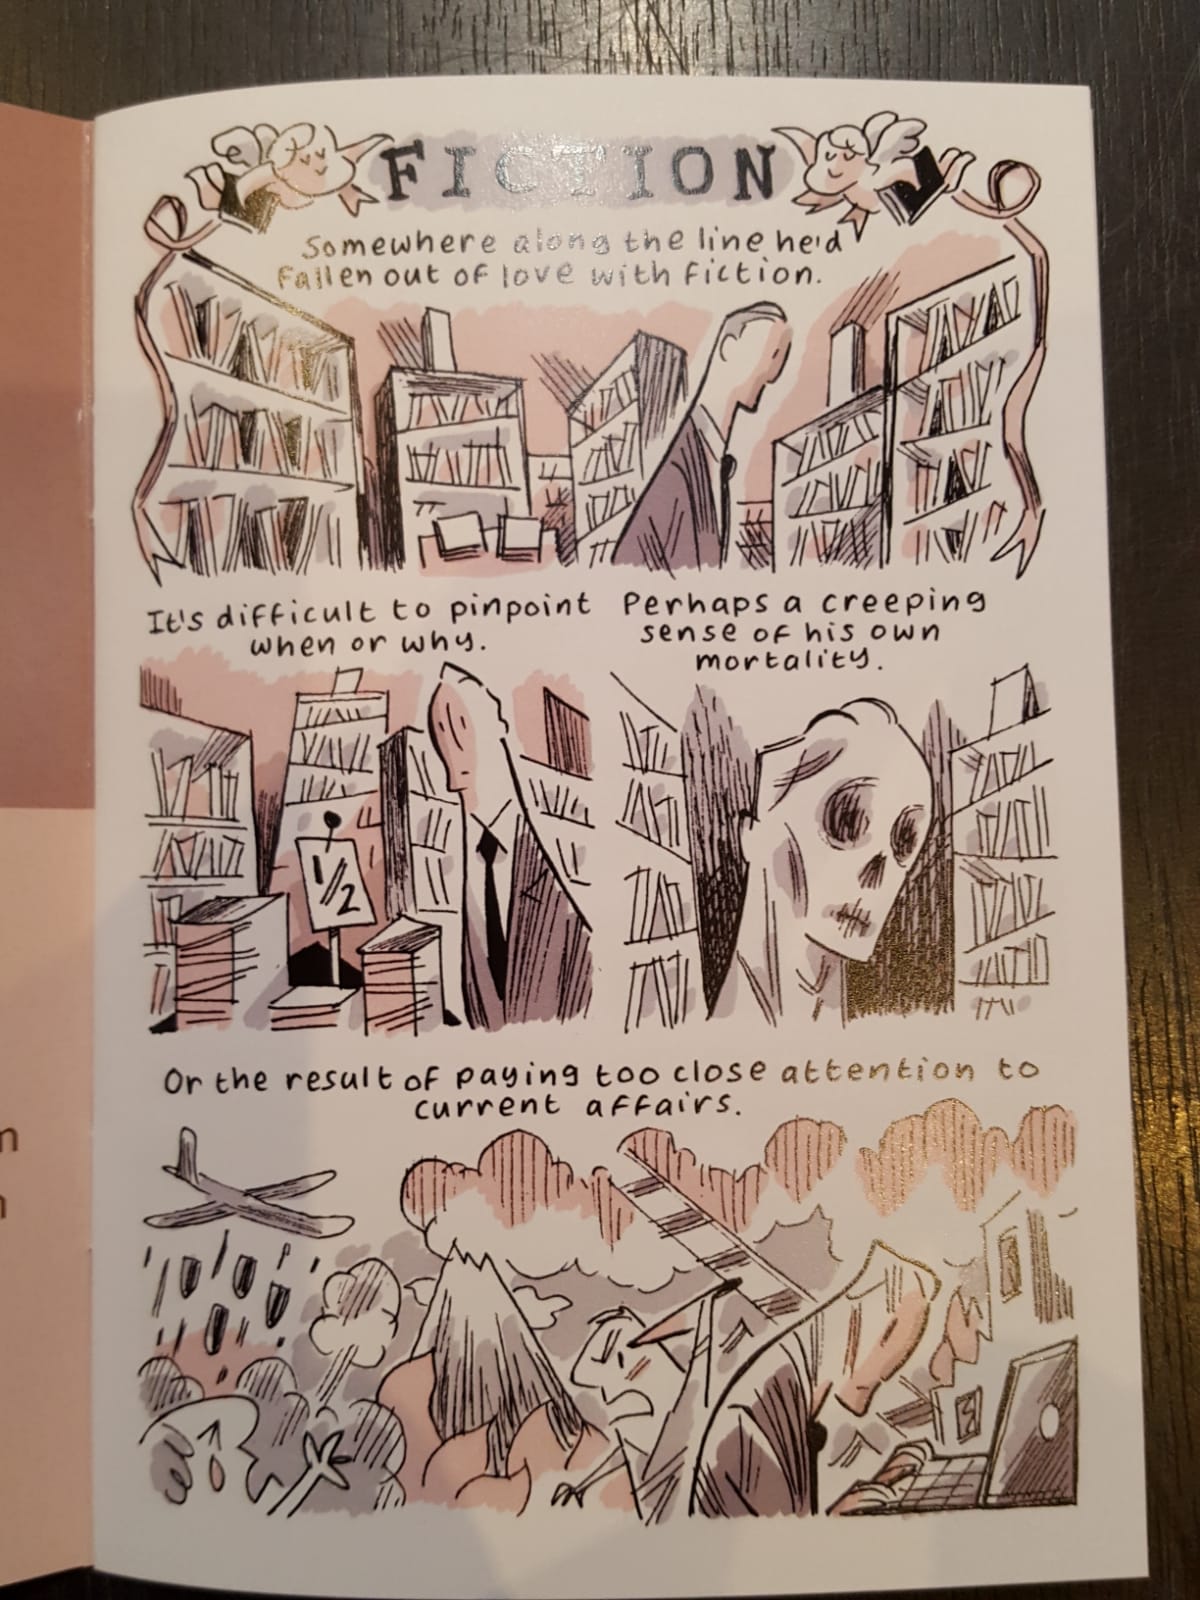 FICTION
Somewhere along the line he'd
fallen out of love with fiction.
It's difficult to pinpoint
when or why.
Perhaps a creeping
sense of his own
mortality.
1/2
Or the result of paying too close attention to
current affairs.